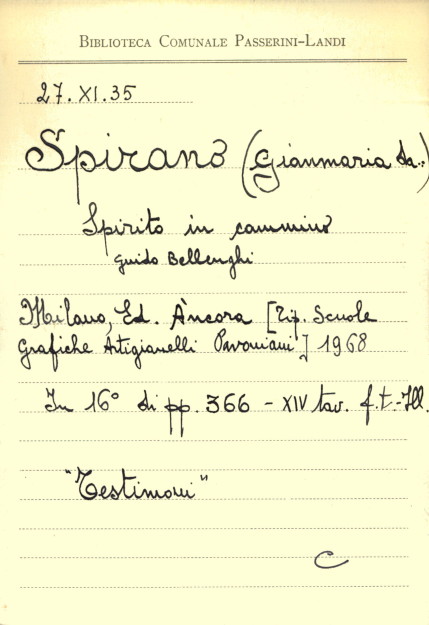 BIBLIOTECA COMUNALE PASSERINI-LANDI
27.XI.35
Spirano (Gianmaria da..)
Spirito in cammino
Guido Bellenghi
Milano, Ed. Àncora [Tip. Scuole
Grafiche Artigianelli Pavoniani] 1968
In 16° di pp. 366 - XIV tav. f.t.-Ill.
"Testimoni"
C